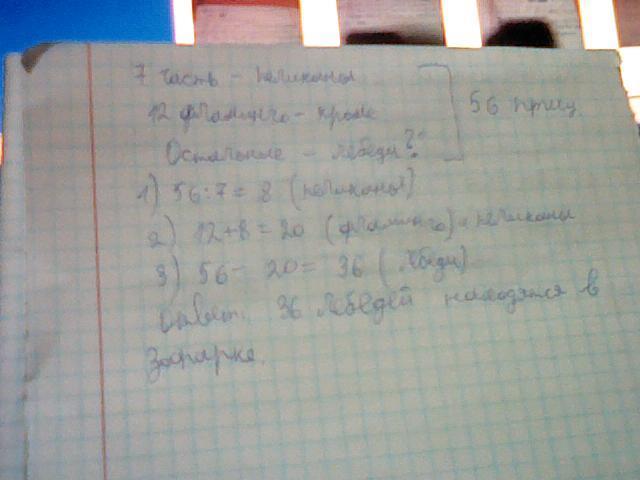 7 часть - пеликаны
12 фламинго - кроме
Остальные - лебеди?
56 птиц
1) 56:7= 8 (пеликаны)
2) 12+8=20 (фламинго) и пеликаны
3) 56- 20= 36 (лебеди)
ответ: 36 лебедей находятся в
Зоопарке.